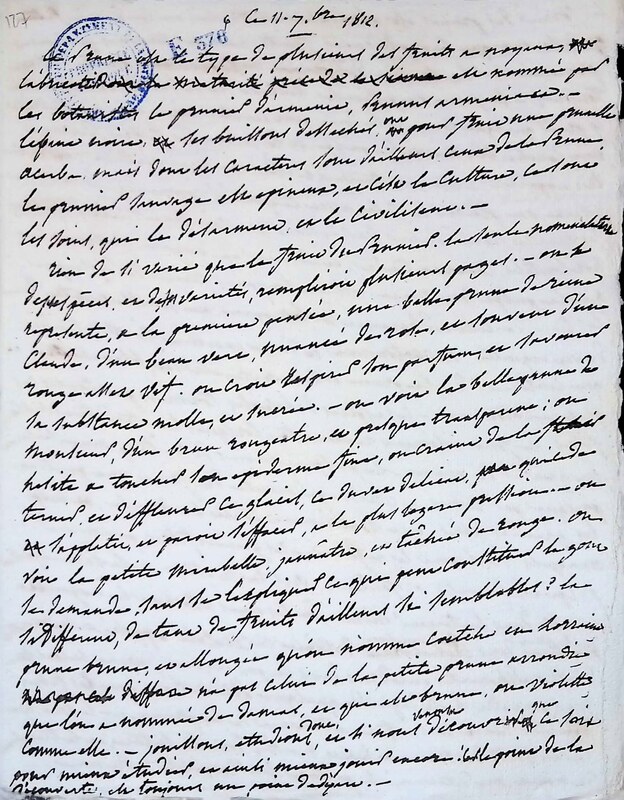 127
ç Ce 11. 7.bre 1812.
E 376
la Prune est le type de plusieurs des fruits a noyaux,
l'abricot elle nommé par
les botanistes le prunier d'armenie, Prunus armeniaca. -
l'épine noire, ses buissons desséchés, ont pour fruit une prunelle
acerbe, mais dont les caracteres sont d'ailleurs ceux de la Prune
le prunier sauvage est épineux, et c'est la culture, ce sont
les soins, qui le désarment, et le civilisent. -
rien de si varié que le fruit du Prunier. la seule nomenclature
des espèces, et des variétés, rempliroit plusieurs pages. - on se
represente, a la premiere pensée, une belle prune de reine
Claude, d'un beau vert, nuancé de rose, et souvent d'un
rouge assez vif. on croit respirer son parfum, et savourer
sa substance molle, et sucrée. - on voit la belle prune de
monsieur, d'un brun rougeatre, et presque transparent; on
hésite a toucher son epiderme fine, on craint de la
ternir, et d'effleurer ce glacis, ce duvet délicat, qui cede
s'applatit, et paroit s'effacer, a la plus legere pression. - on
voit la petite mirabelle, jaunâtre, et tâchée de rouge. on
se demande, sans se l'expliquer ce qui peut constituer le goût
si different, de tant de fruits d'ailleurs si semblables? la
prune brune, et allongée qu'on nomme coetche en Lorraine
n'a pas celui de la petite prune arrondie
que l'on a nommée de damas, et qui est brune, ou violette
comme elle. - jouissons, étudions donc, et si nous découvrons que ce soit
pour mieux étudier, et ainsi mieux jouir encore: le poeme de la
découverte, est toujours un poeme